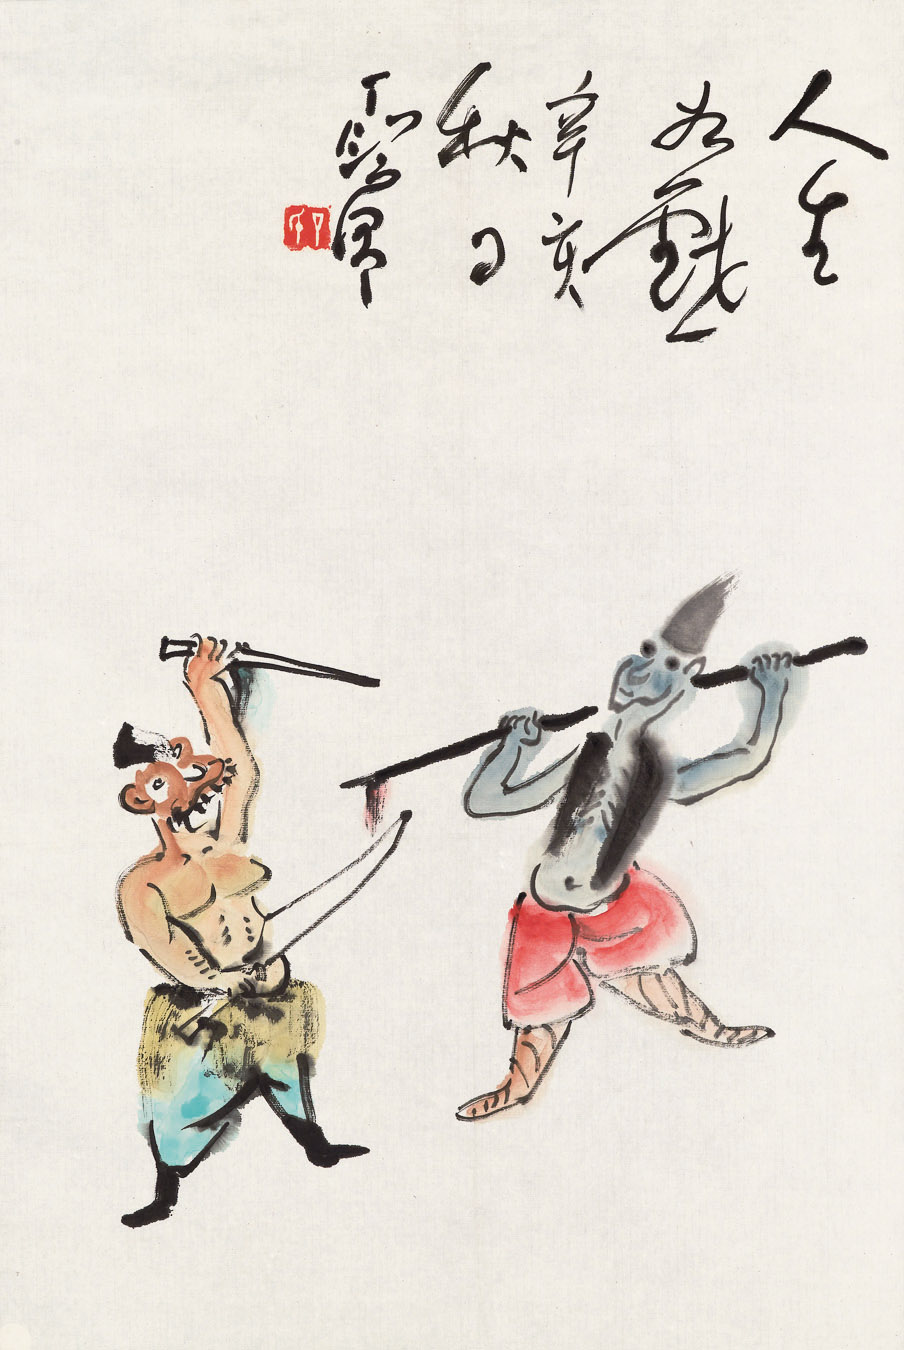 人生
如戲
辛亥
秋日
丁衍庸